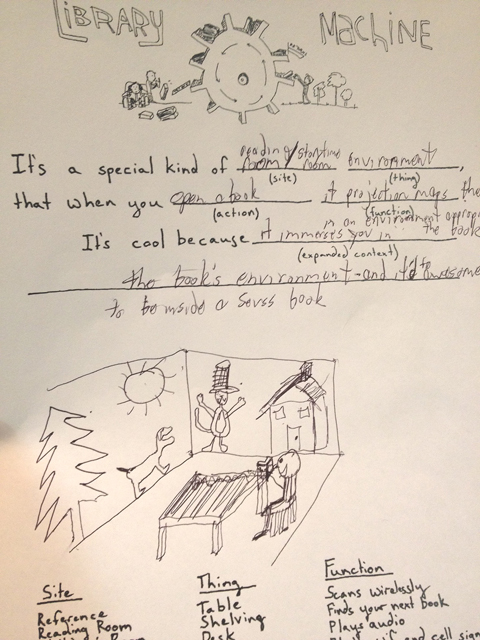 LIBRARY MACHINE
reading/storytime
It's a special kind of room/room environment,
(site) (thing)
that when you open a book it projection maps the
(action) (function)
in an environment appropr
It's cool because it immerses you in the book
(expanded context)
the book's environment - and it'd be awesome
to be inside a Seuss book
Site
Reference
Reading Room
Room
Thing
Table
Shelving
Desk
Function
Scans wirelessly
Finds your next book
Plays audio
and cell sign